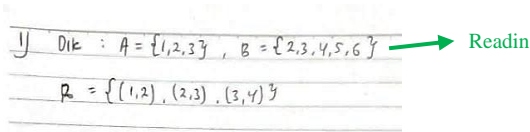 1) Dik : A = {1,2,3} , B = {2,3,4,5,6} Readin
R = {(1,2), (2,3), (3,4)}